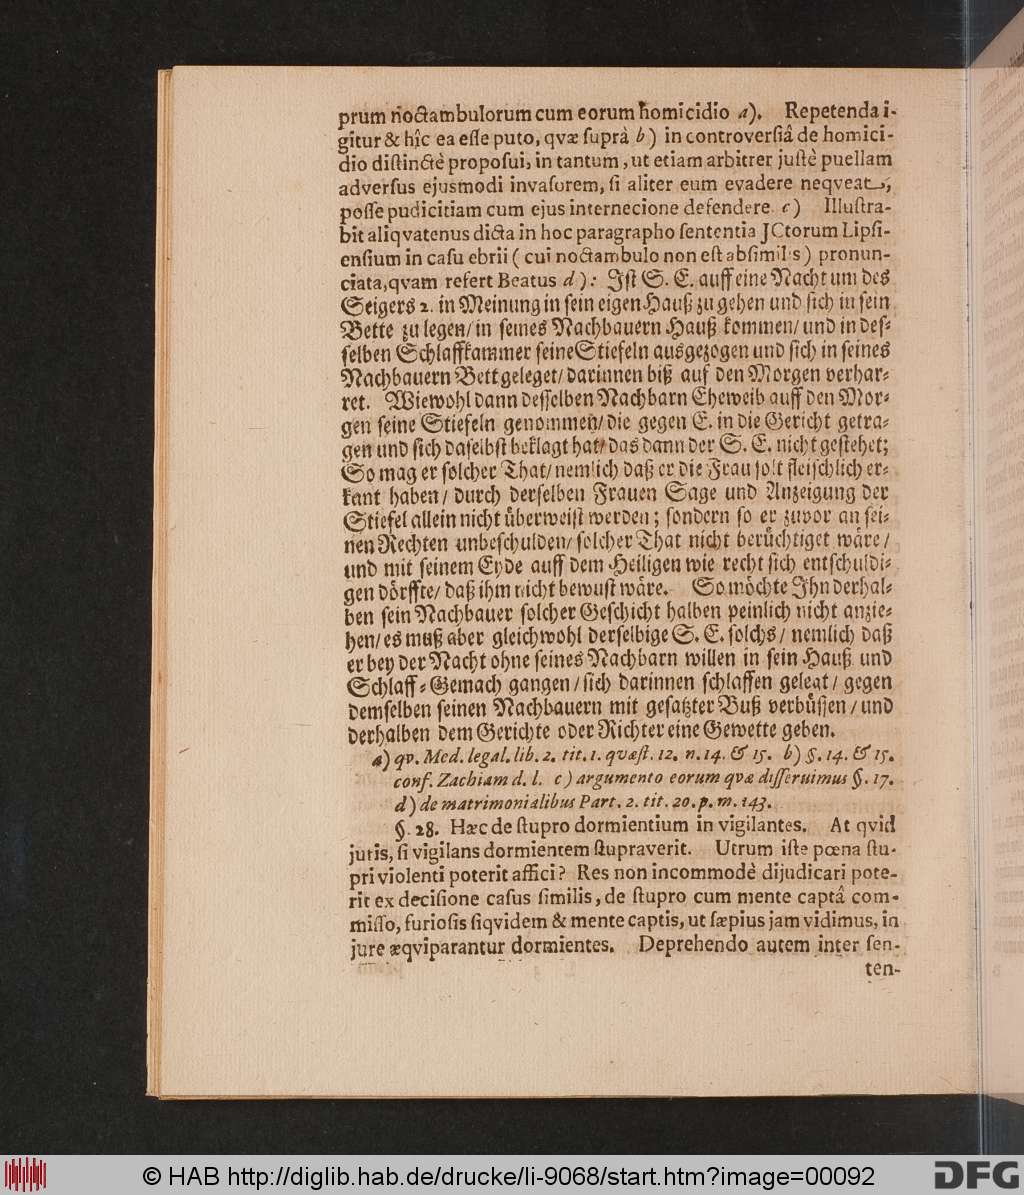 prum noctambulorum cum eorum homicidio a). Repetenda i-
gitur & hîc ea esse puto, qvæ suprà b) in controversiâ de homici-
dio distinctè proposui, in tantum, ut etiam arbitrer justè puellam
adversus ejusmodi invasorem, si aliter eum evadere neqveat,
posse pudicitiam cum ejus internecione defendere. c) Illustra-
bit aliqvatenus dicta in hoc paragrapho sententia JCtorum Lipsi-
ensium in casu ebrii (cui noctambulo non est absimilis) pronun-
ciata, qvam refert Beatus d): Jst S. E. auff eine Nacht um des
Seigers 2. in Meinung in sein eigen Hauß zu gehen und sich in sein
Bette zu legen/ in seines Nachbauern Hauß kommen/ und in des-
selben Schlaffkammer seine Stiefeln ausgezogen und sich in seines
Nachbauern Bett geleget/ darinnen biß auf den Morgen verhar-
ret. Wiewohl dann desselben Nachbarn Eheweib auff den Mor-
gen seine Stiefeln genommen/ die gegen E. in die Gericht getra-
gen und sich daselbst beklagt hat/ das dann der S. E. nicht gestehet;
So mag er solcher That/ nemlich daß er die Frau solt fleischlich er-
kant haben/ durch derselben Frauen Sage und Anzeigung der
Stiefel allein nicht überweist werden; sondern so er zuvor an sei-
nen Rechten unbeschulden/ solcher That nicht berüchtiget wäre/
und mit seinem Eyde auff dem Heiligen wie recht sich entschuldi-
gen dörffte/ daß ihm nicht bewust wäre. So möchte Jhn derhal-
ben sein Nachbauer solcher Geschicht halben peinlich nicht anzie-
hen/ es muß aber gleichwohl derselbige S. E. solchs/ nemlich daß
er bey der Nacht ohne seines Nachbarn willen in sein Hauß und
Schlaff-Gemach gangen/ sich darinnen schlaffen gelegt/ gegen
demselben seinen Nachbauern mit gesatzter Buß verbüssen/ und
derhalben dem Gerichte oder Richter eine Gewette geben.
a) qv. Med. legal. lib. 2. tit. 1. qvæst. 12. n. 14. & 15. b) §. 14. & 15.
conf. Zachiam d. l. c) argumento eorum qvæ disseruimus §. 17.
d) de matrimonialibus Part. 2. tit. 20. p. m. 143.
§. 28. Hæc de stupro dormientium in vigilantes. At qvid
juris, si vigilans dormientem stupraverit. Utrum iste pœna stu-
pri violenti poterit affici? Res non incommodè dijudicari pote-
rit ex decisione casus similis, de stupro cum mente captâ com-
misso, furiosis siqvidem & mente captis, ut sæpius jam vidimus, in
jure æqviparantur dormientes. Deprehendo autem inter sen-
ten-
© HAB http://diglib.hab.de/drucke/li-9068/start.htm?image=00092
DFG